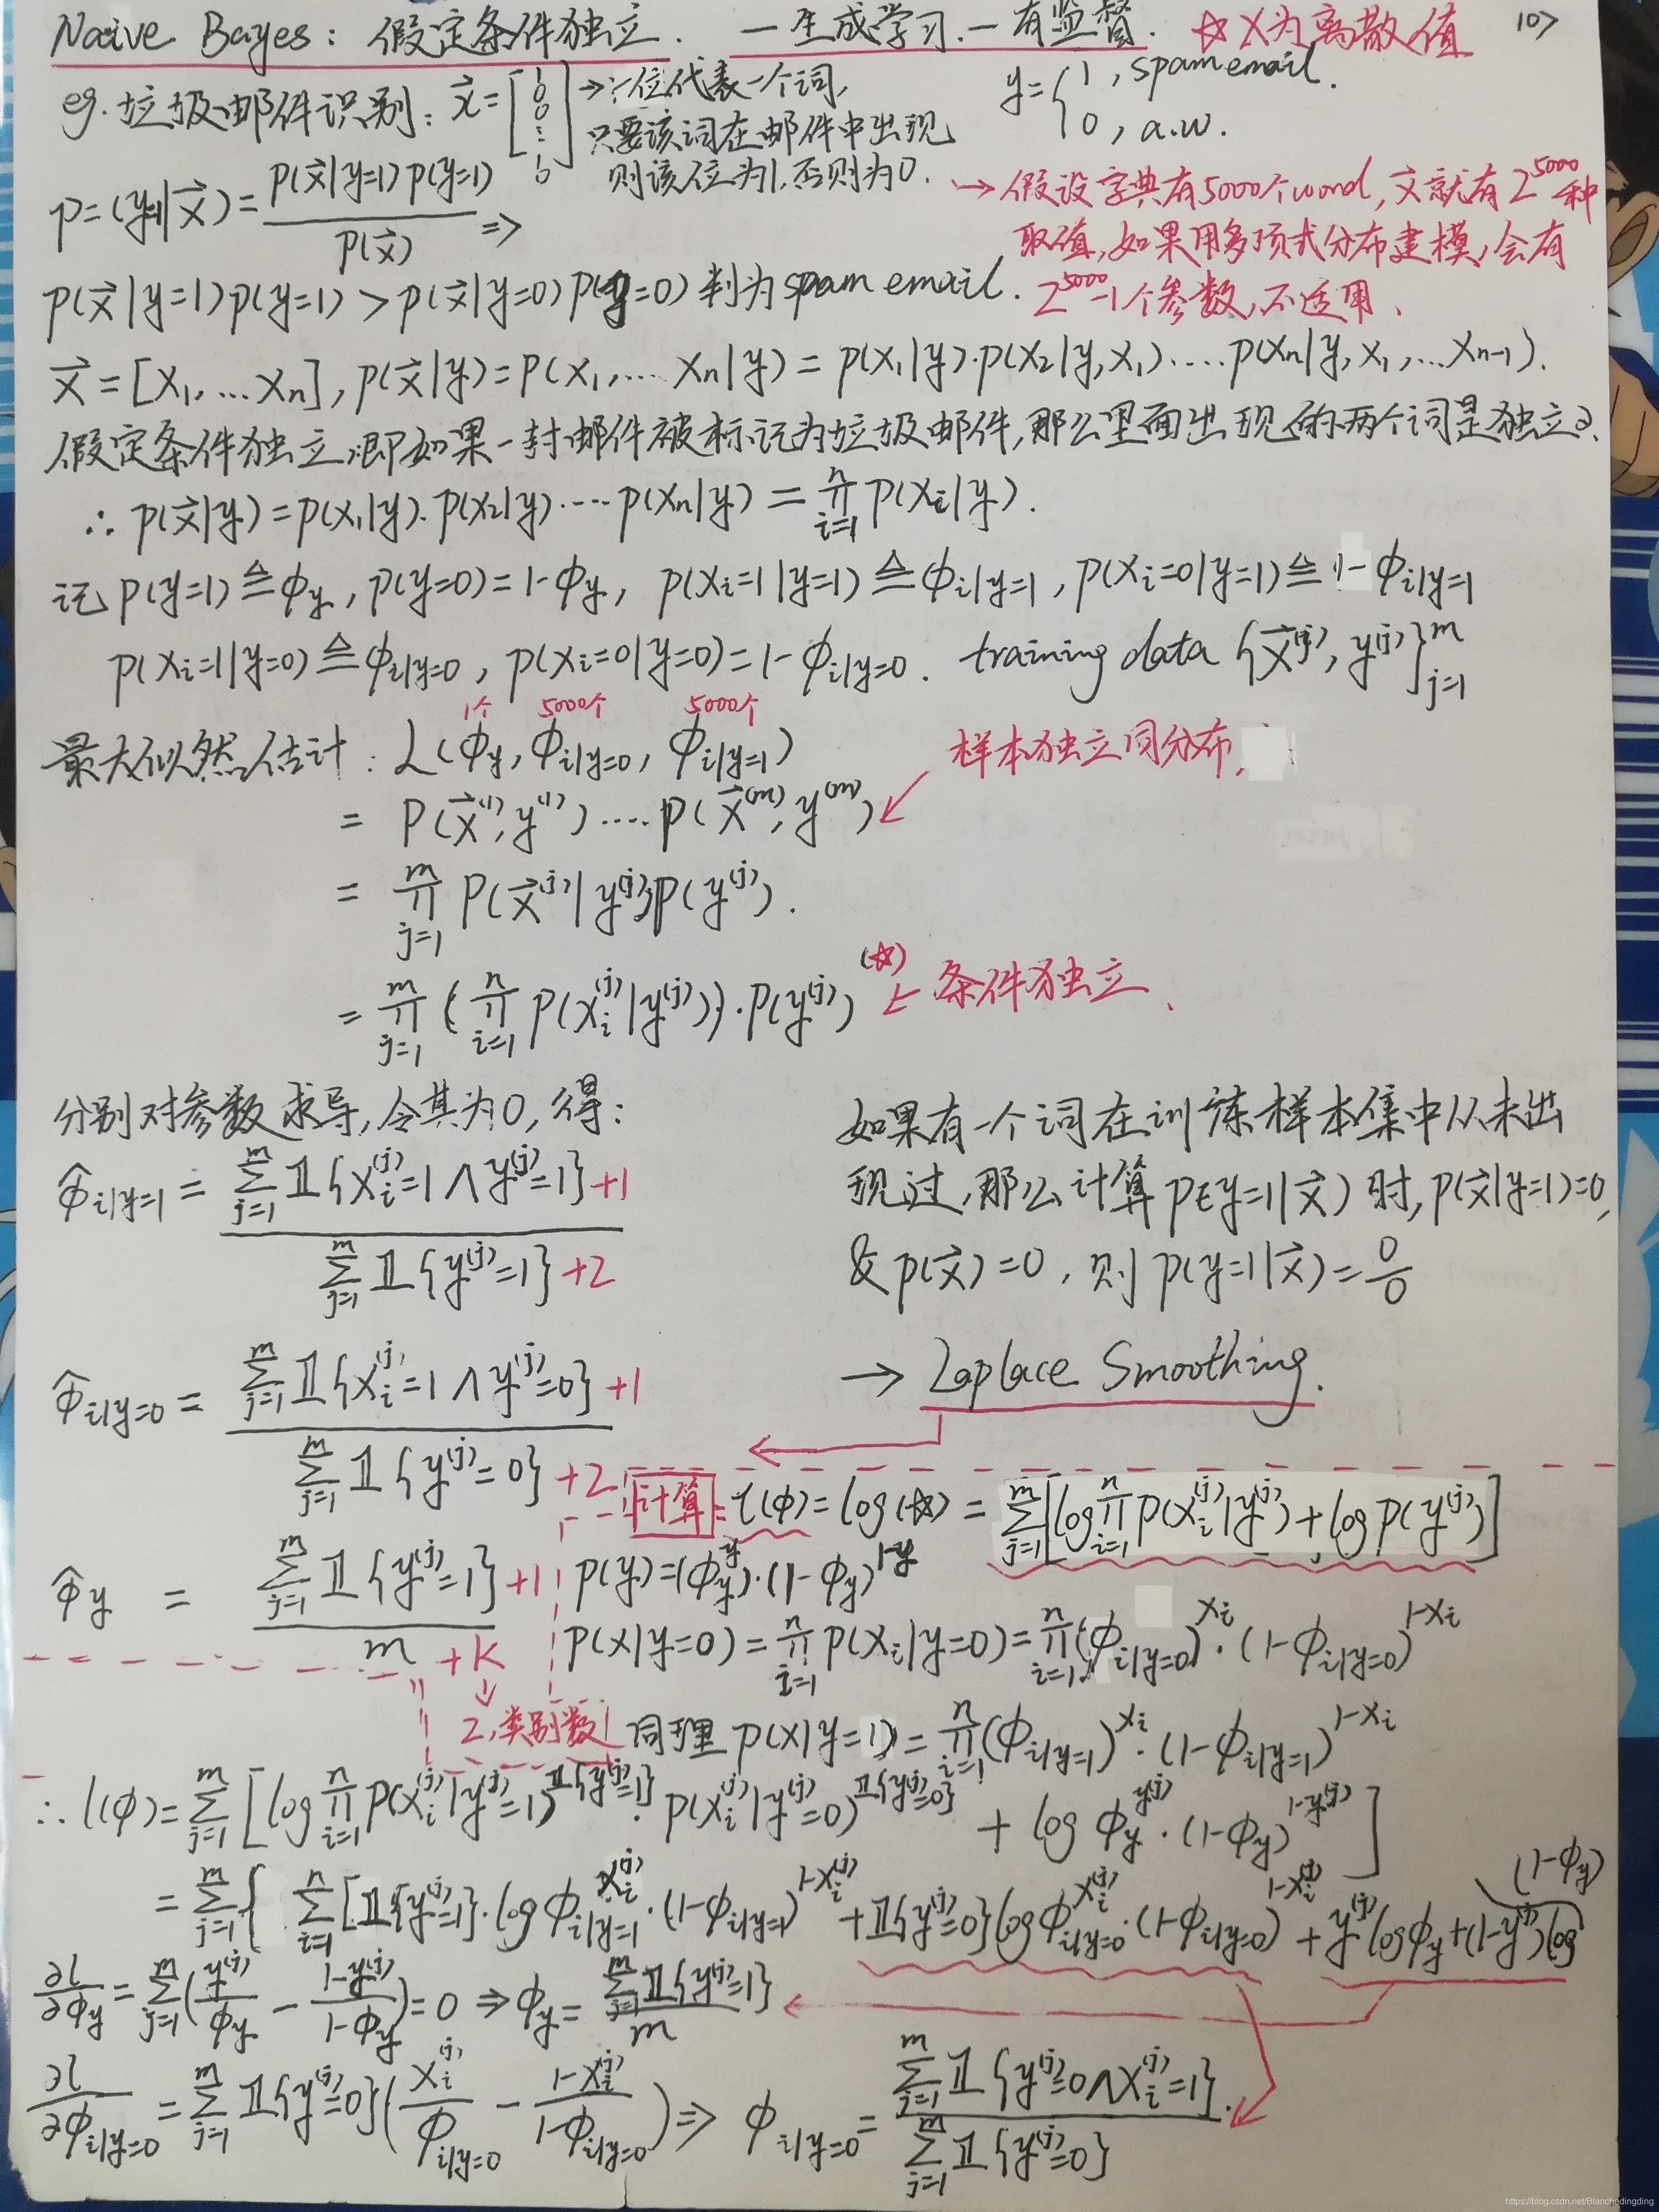 Naive Bayes: 假定条件独立. —生成学习.—有监督. ☆ X为离散值 10>
eg. 垃圾邮件识别: x⃗=[1 0 0 ⋮ 0] →一位代表一个词, y={1, spam email.
只要该词在邮件中出现 0, a.w.
则该位为1,否则为0.
p=(y=1|x⃗)=p(x⃗|y=1)p(y=1)/p(x⃗) ⇒
→假设字典有5000个word, x⃗就有2^5000种
取值,如果用多项式分布建模,会有
2^5000-1个参数,不适用.
p(x⃗|y=1)p(y=1)>p(x⃗|y=0)p(y=0)判为spam email.
x⃗=[x₁,…xₙ], p(x⃗|y)=p(x₁,…xₙ|y)=p(x₁|y)·p(x₂|y,x₁)….p(xₙ|y,x₁,…xₙ₋₁).
假定条件独立,即如果一封邮件被标记为垃圾邮件,那么里面出现的两个词是独立的.
∴ p(x⃗|y)=p(x₁|y).p(x₂|y)…p(xₙ|y)=∏_{i=1}^n p(x_i|y).
记 p(y=1)≜ϕ_y, p(y=0)=1-ϕ_y, p(x_i=1|y=1)≜ϕ_{i|y=1}, p(x_i=0|y=1)≜1-ϕ_{i|y=1}
p(x_i=1|y=0)≜ϕ_{i|y=0}, p(x_i=0|y=0)=1-ϕ_{i|y=0}. training data {x⃗^(j), y^(j)}_{j=1}^m
1个 5000个 5000个
最大似然估计: L(ϕ_y, ϕ_{i|y=0}, ϕ_{i|y=1}) 样本独立同分布,
= p(x⃗^(1), y^(1))….p(x⃗^(m), y^(m))
= ∏_{j=1}^m p(x⃗^(j)|y^(j))p(y^(j)).
= ∏_{j=1}^m {∏_{i=1}^n p(x_i^(j)|y^(j))}·p(y^(j)) (☆) ← 条件独立.
分别对参数求导,令其为0,得:
ϕ̂_{i|y=1} = (∑_{j=1}^m 𝟙{x_i^(j)=1∧y^(j)=1}+1)/(∑_{j=1}^m 𝟙{y^(j)=1}+2)
ϕ̂_{i|y=0} = (∑_{j=1}^m 𝟙{x_i^(j)=1∧y^(j)=0}+1)/(∑_{j=1}^m 𝟙{y^(j)=0}+2)
ϕ̂_y = (∑_{j=1}^m 𝟙{y^(j)=1}+1)/(m+K)
2,类别数
如果有一个词在训练样本集中从未出
现过,那么计算p(y=1|x⃗)时,p(x⃗|y=1)=0,
& p(x⃗)=0, 则 p(y=1|x⃗)=0/0
→ Laplace Smoothing.
计算: l(ϕ)=log(☆)=∑_{j=1}^m[log∏_{i=1}^n p(x_i^(j)|y^(j))+log p(y^(j))]
p(y)=(ϕ_y^y)·(1-ϕ_y)^{1-y}
p(x|y=0)=∏_{i=1}^n p(x_i|y=0)=∏_{i=1}^n(ϕ_{i|y=0})^{x_i}·(1-ϕ_{i|y=0})^{1-x_i}
同理 p(x|y=1)=∏_{i=1}^n(ϕ_{i|y=1})^{x_i}·(1-ϕ_{i|y=1})^{1-x_i}
∴ l(ϕ)=∑_{j=1}^m[log∏_{i=1}^n p(x_i^(j)|y^(j)=1)^{𝟙{y^(j)=1}}·p(x_i^(j)|y^(j)=0)^{𝟙{y^(j)=0}} + log ϕ_y^{y^(j)}·(1-ϕ_y)^{1-y^(j)}]
=∑_{j=1}^m{∑_{i=1}^n[𝟙{y^(j)=1}·log ϕ_{i|y=1}^{x_i^(j)}·(1-ϕ_{i|y=1})^{1-x_i^(j)}+𝟙{y^(j)=0}log ϕ_{i|y=0}^{x_i^(j)}·(1-ϕ_{i|y=0})^{1-x_i^(j)}+y^(j)logϕ_y+(1-y^(j))log(1-ϕ_y)
∂l/∂ϕ_y=∑_{j=1}^m(y^(j)/ϕ_y - (1-y^(j))/(1-ϕ_y))=0 ⇒ ϕ_y=∑_{j=1}^m 𝟙{y^(j)=1}/m
∂l/∂ϕ_{i|y=0}=∑_{j=1}^m 𝟙{y^(j)=0}(x_i^(j)/ϕ_{i|y=0} - (1-x_i^(j))/(1-ϕ_{i|y=0})) ⇒ ϕ_{i|y=0}=∑_{j=1}^m 𝟙{y^(j)=0∧x_i^(j)=1}/∑_{j=1}^m 𝟙{y^(j)=0}.
https://blog.csdn.net/Blanchedingding